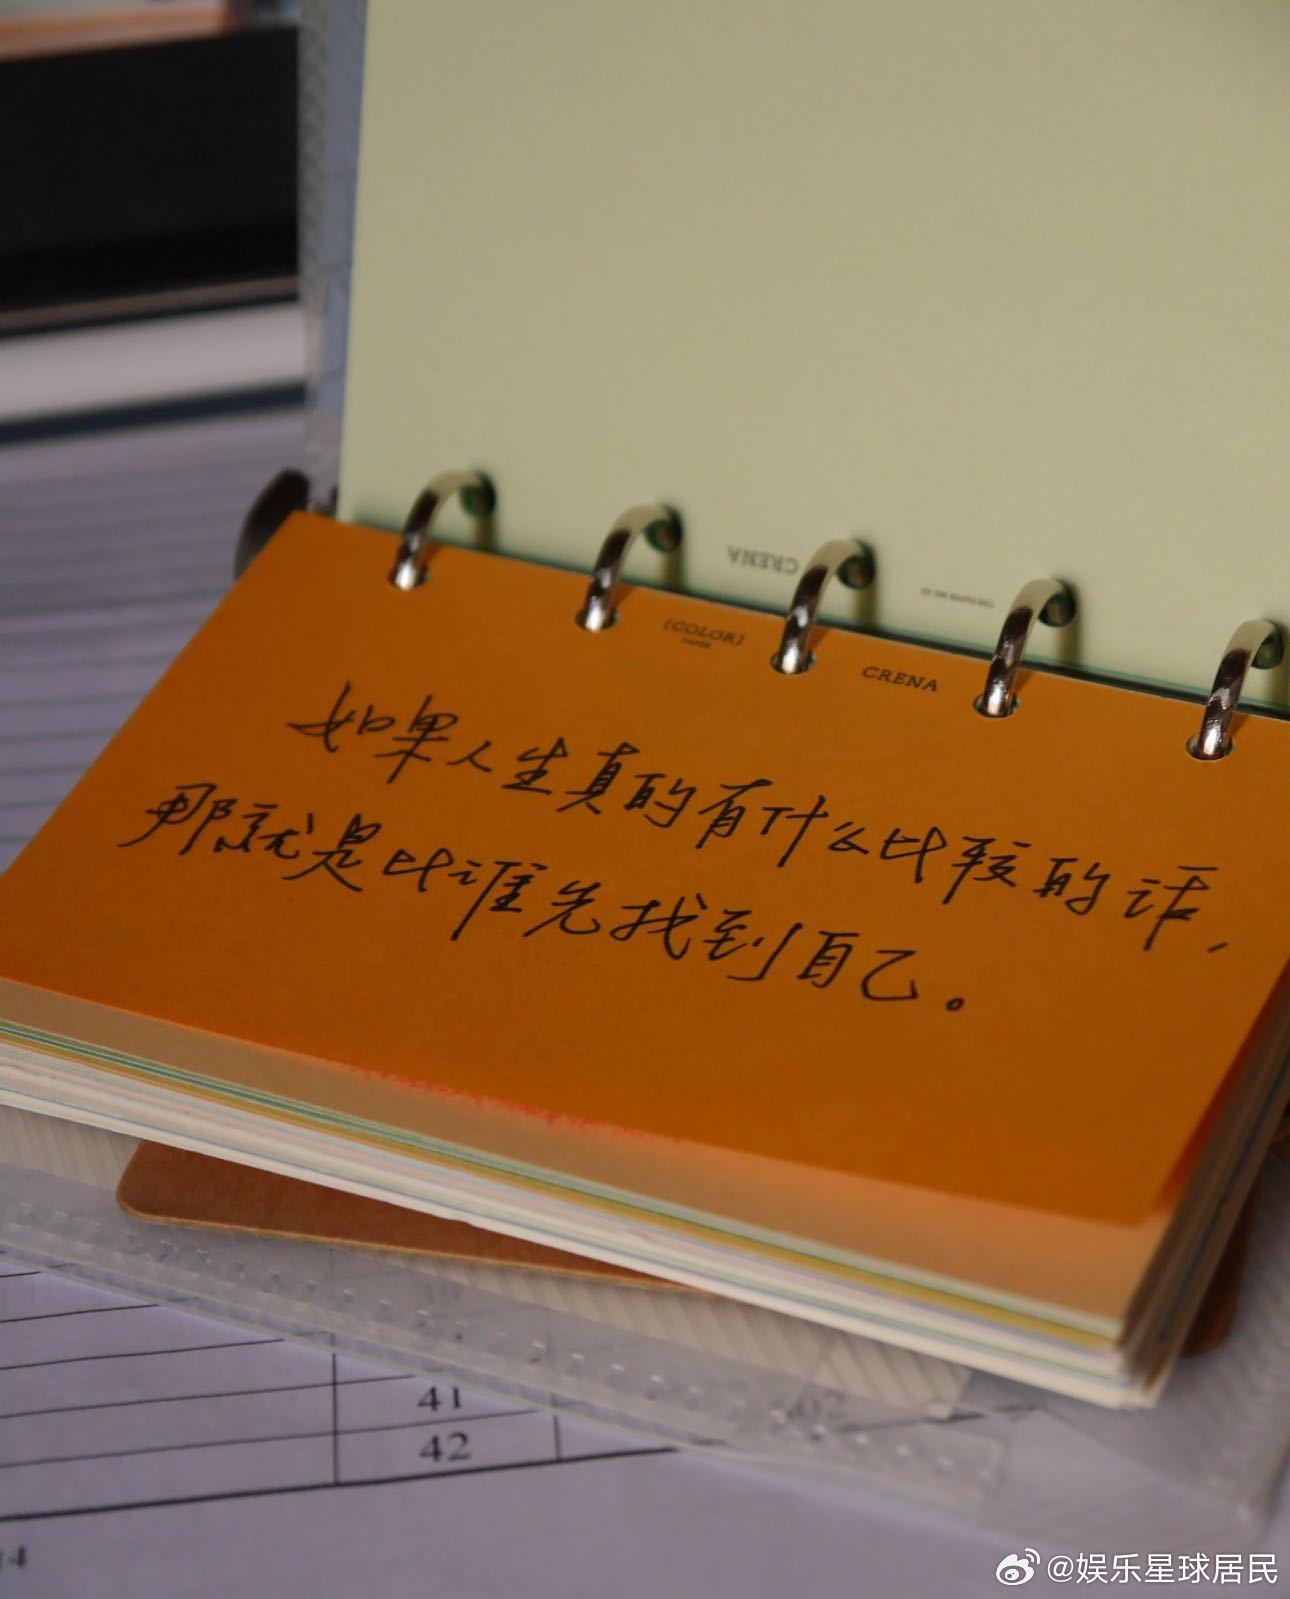 CRENA
[COLOR]
PAPER
CRENA
如果人生真的有什么比较的话,
那就是比谁先找到自己。
41
42
@娱乐星球居民